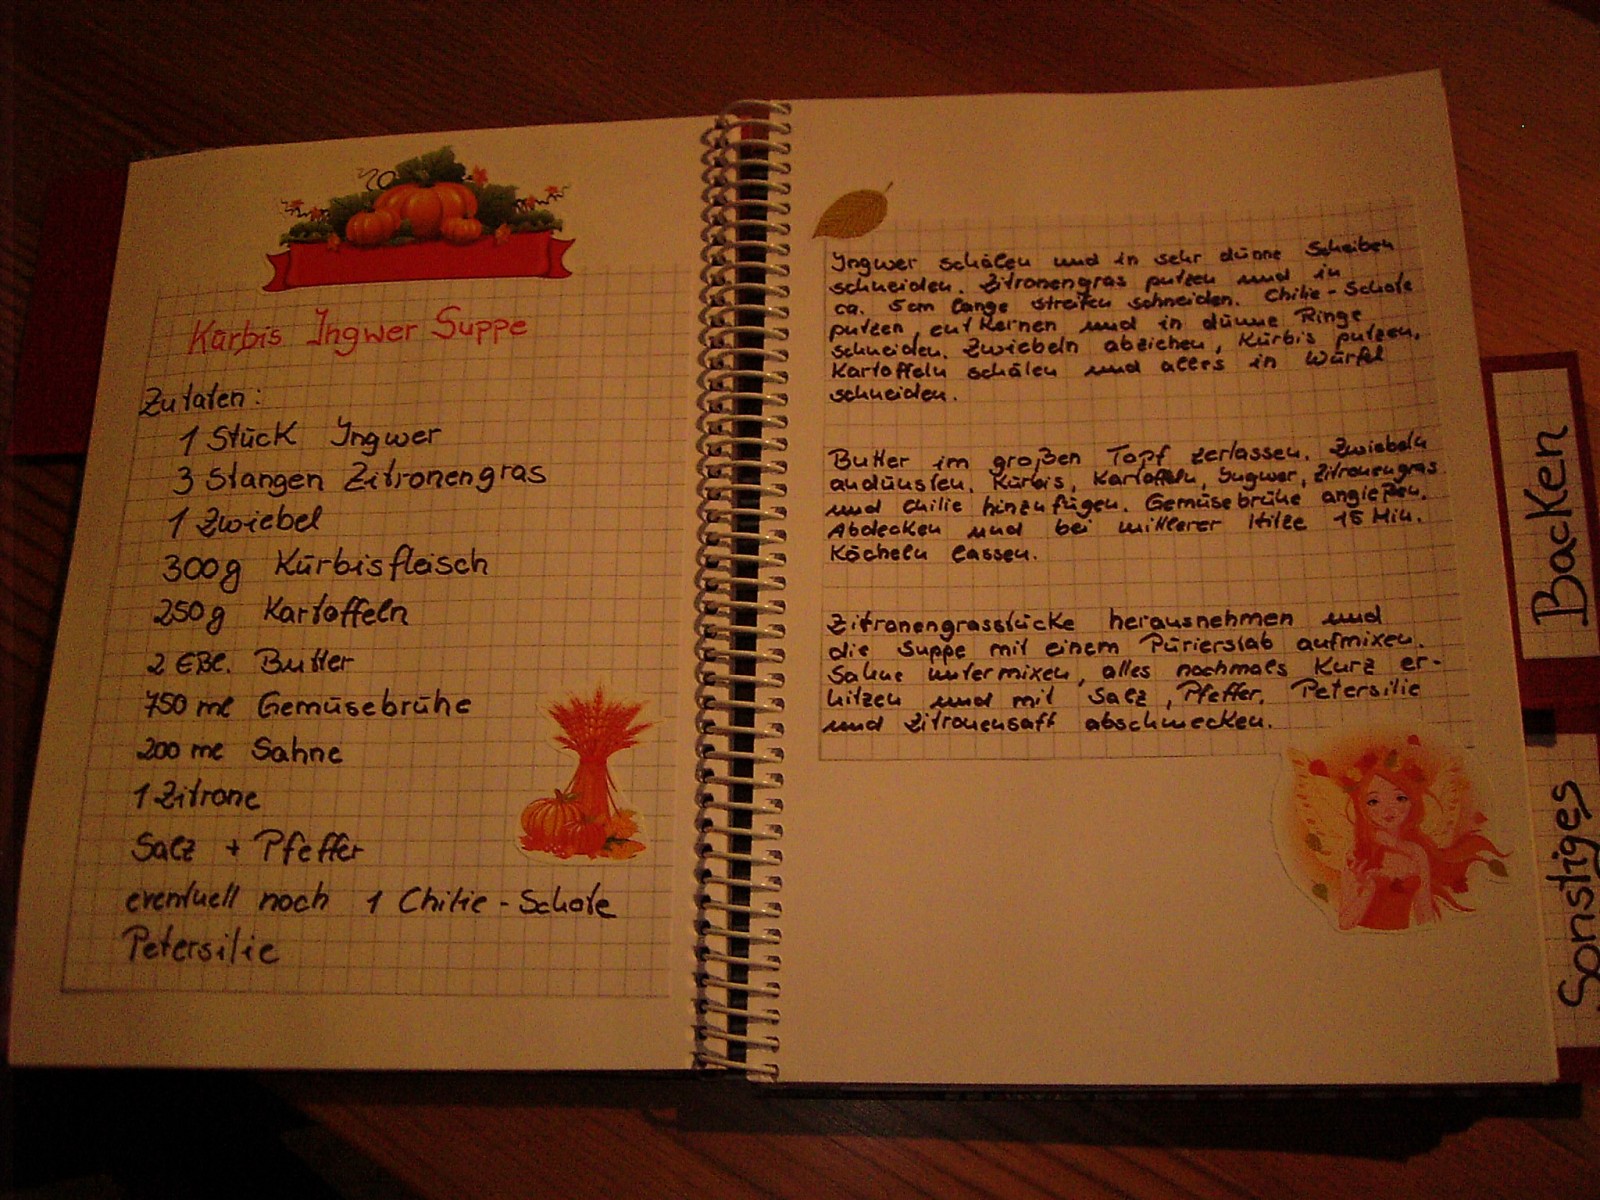 Kürbis Ingwer Suppe
Zutaten:
1 Stück Ingwer
3 Stangen Zitronengras
1 Zwiebel
300g Kürbisfleisch
250g Kartoffeln
2 Eßl. Butter
750 ml Gemüsebrühe
200 ml Sahne
1 Zitrone
Salz + Pfeffer
eventuell noch 1 Chilie-Schote
Petersilie
Ingwer schälen und in sehr dünne Scheiben
schneiden. Zitronengras putzen und in
ca. 5cm lange streifen schneiden. Chilie-Schote
putzen, entkernen und in dünne Ringe
schneiden. Zwiebeln abziehen, Kürbis putzen,
Kartoffeln schälen und alles in Würfel
schneiden.
Butter im großen Topf zerlassen. Zwiebeln
andünsten. Kürbis, Kartoffeln, Ingwer, Zitronengras
und Chilie hinzufügen. Gemüsebrühe angießen.
Abdecken und bei mittlerer Hitze 15 Min.
Köcheln lassen.
Zitronengrasstücke herausnehmen und
die Suppe mit einem Pürierstab aufmixen.
Sahne untermixen, alles nochmals kurz er-
hitzen und mit Salz, Pfeffer, Petersilie
und Zitronensaft abschmecken.
Backen
Sonstiges